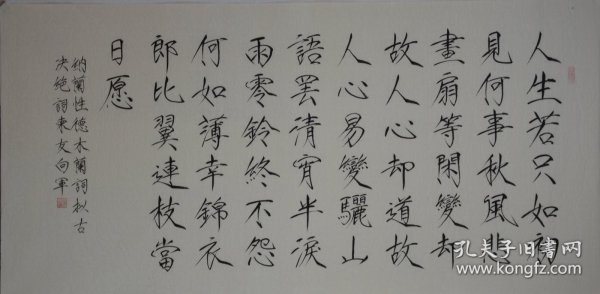 人生若只如初
見何事秋風悲
畫扇等閑變却
故人心却道故
人心易變驪山
語罷清宵半淚
雨零鈴終不怨
何如薄幸錦衣
郎比翼連枝當
日愿
納蘭性德木蘭詞拟古
决绝詞柬友向軍
孔夫子旧书网
www.kongfz.com